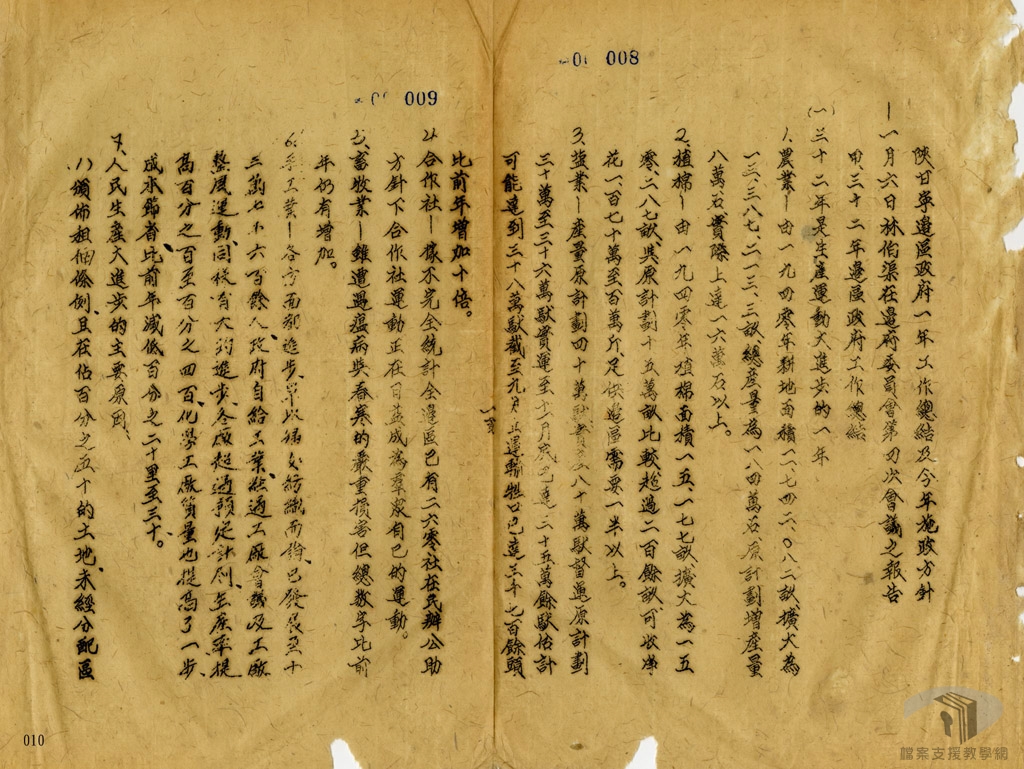 008
陝甘寧邊區政府一年工作總結及今年施政方針
一月六日林伯渠在邊府委員會第四次會議之報告
甲、三十二年邊區政府工作總結
(一)三十二年是生產運動大進步的一年
1.農業—由一九四零年耕地面積一一、七四二、〇八二畝、擴大為
一三、三八七、二一三、三畝、總產量為一八四萬石、原計劃增產量
八萬石實際上達一六萬石以上。
2.植棉—由一九四零年植棉面積一五、一七七畝擴大為一五
零、二八七畝、與原計劃十五萬畝比較超過二百餘畝、可收淨
花一、百七十萬至百萬斤、足供邊區需要一半以上。
3.鹽業—產量原計劃四十萬馱實產八十萬馱督運原計劃
三十萬至三十六萬馱實運至十一月底已達二十五萬餘馱估計
可能達到三十八萬馱截至九月止運輸牲口已達三千七百餘頭
009
比前年增加十倍。
4.合作社—據不完全統計全邊區已有二六零社在民辦公助
方針下合作社運動正在日益成為羣眾自己的運動。
5.畜牧業—雖遭遇瘟病與春寒的嚴重損害但總數字比前
年仍有增加。
6.手工業—各方面都進步、單以婦女紡織而論、已發展至十
三萬七千六百餘人、政府自給工業、經過工廠會議及工廠
整風運動、同樣有大的進步、各廠超過預定計劃、生產率提
高百分之百至百分之四百、化學工廠質量也提高了一步、
成本節省比前年減低百分之二十里至三十。
7.人民生產大進步的主要原因、
1)頒佈租佃條例、且在佔百分之五十的土地、未經分配區
010
檔案支援教學網